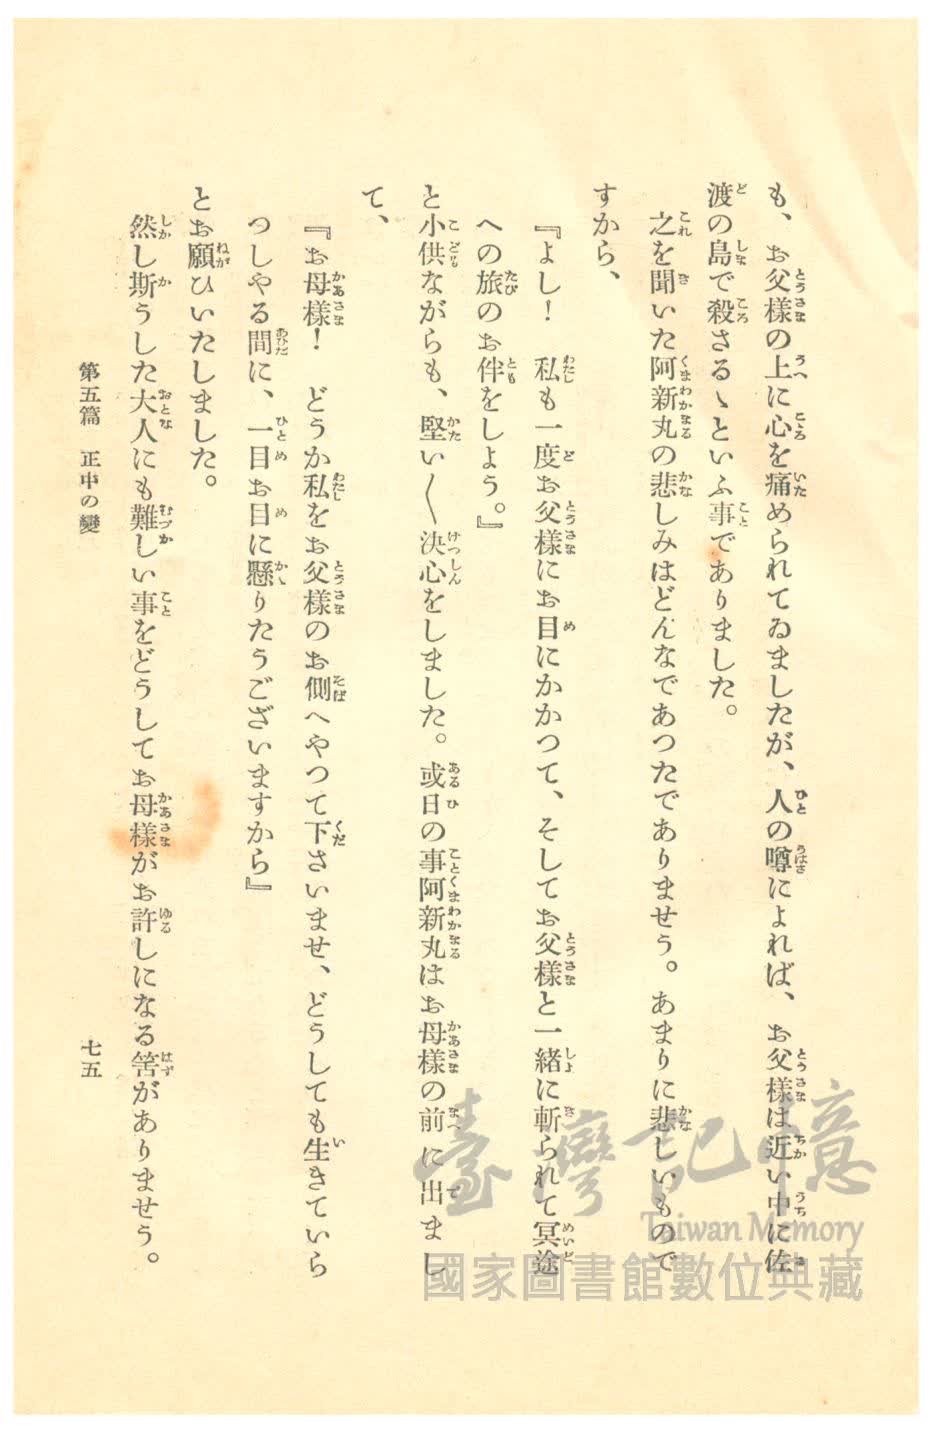 も、お父樣の上に心を痛められてゐましたが、人の噂によれば、お父樣は近い中に佐
渡の島で殺さるゝといふ事でありました。
之を聞いた阿新丸の悲しみはどんなであつたでありませう。あまりに悲しいもので
すから、
『よし！　私も一度お父樣にお目にかかつて、そしてお父樣と一緒に斬られて冥途
への旅のお伴をしよう。』
と小供ながらも、堅い〱決心をしました。或日の事阿新丸はお母樣の前に出まし
て、
『お母樣！　どうか私をお父樣のお側へやつて下さいませ、どうしても生きていら
つしやる間に、一目お目に懸りたうございますから』
とお願ひいたしました。
然し斯うした大人にも難しい事をどうしてお母樣がお許しになる筈がありませう。
第五篇　正中の變
七五
臺灣記憶
Taiwan Memory
國家圖書館數位典藏